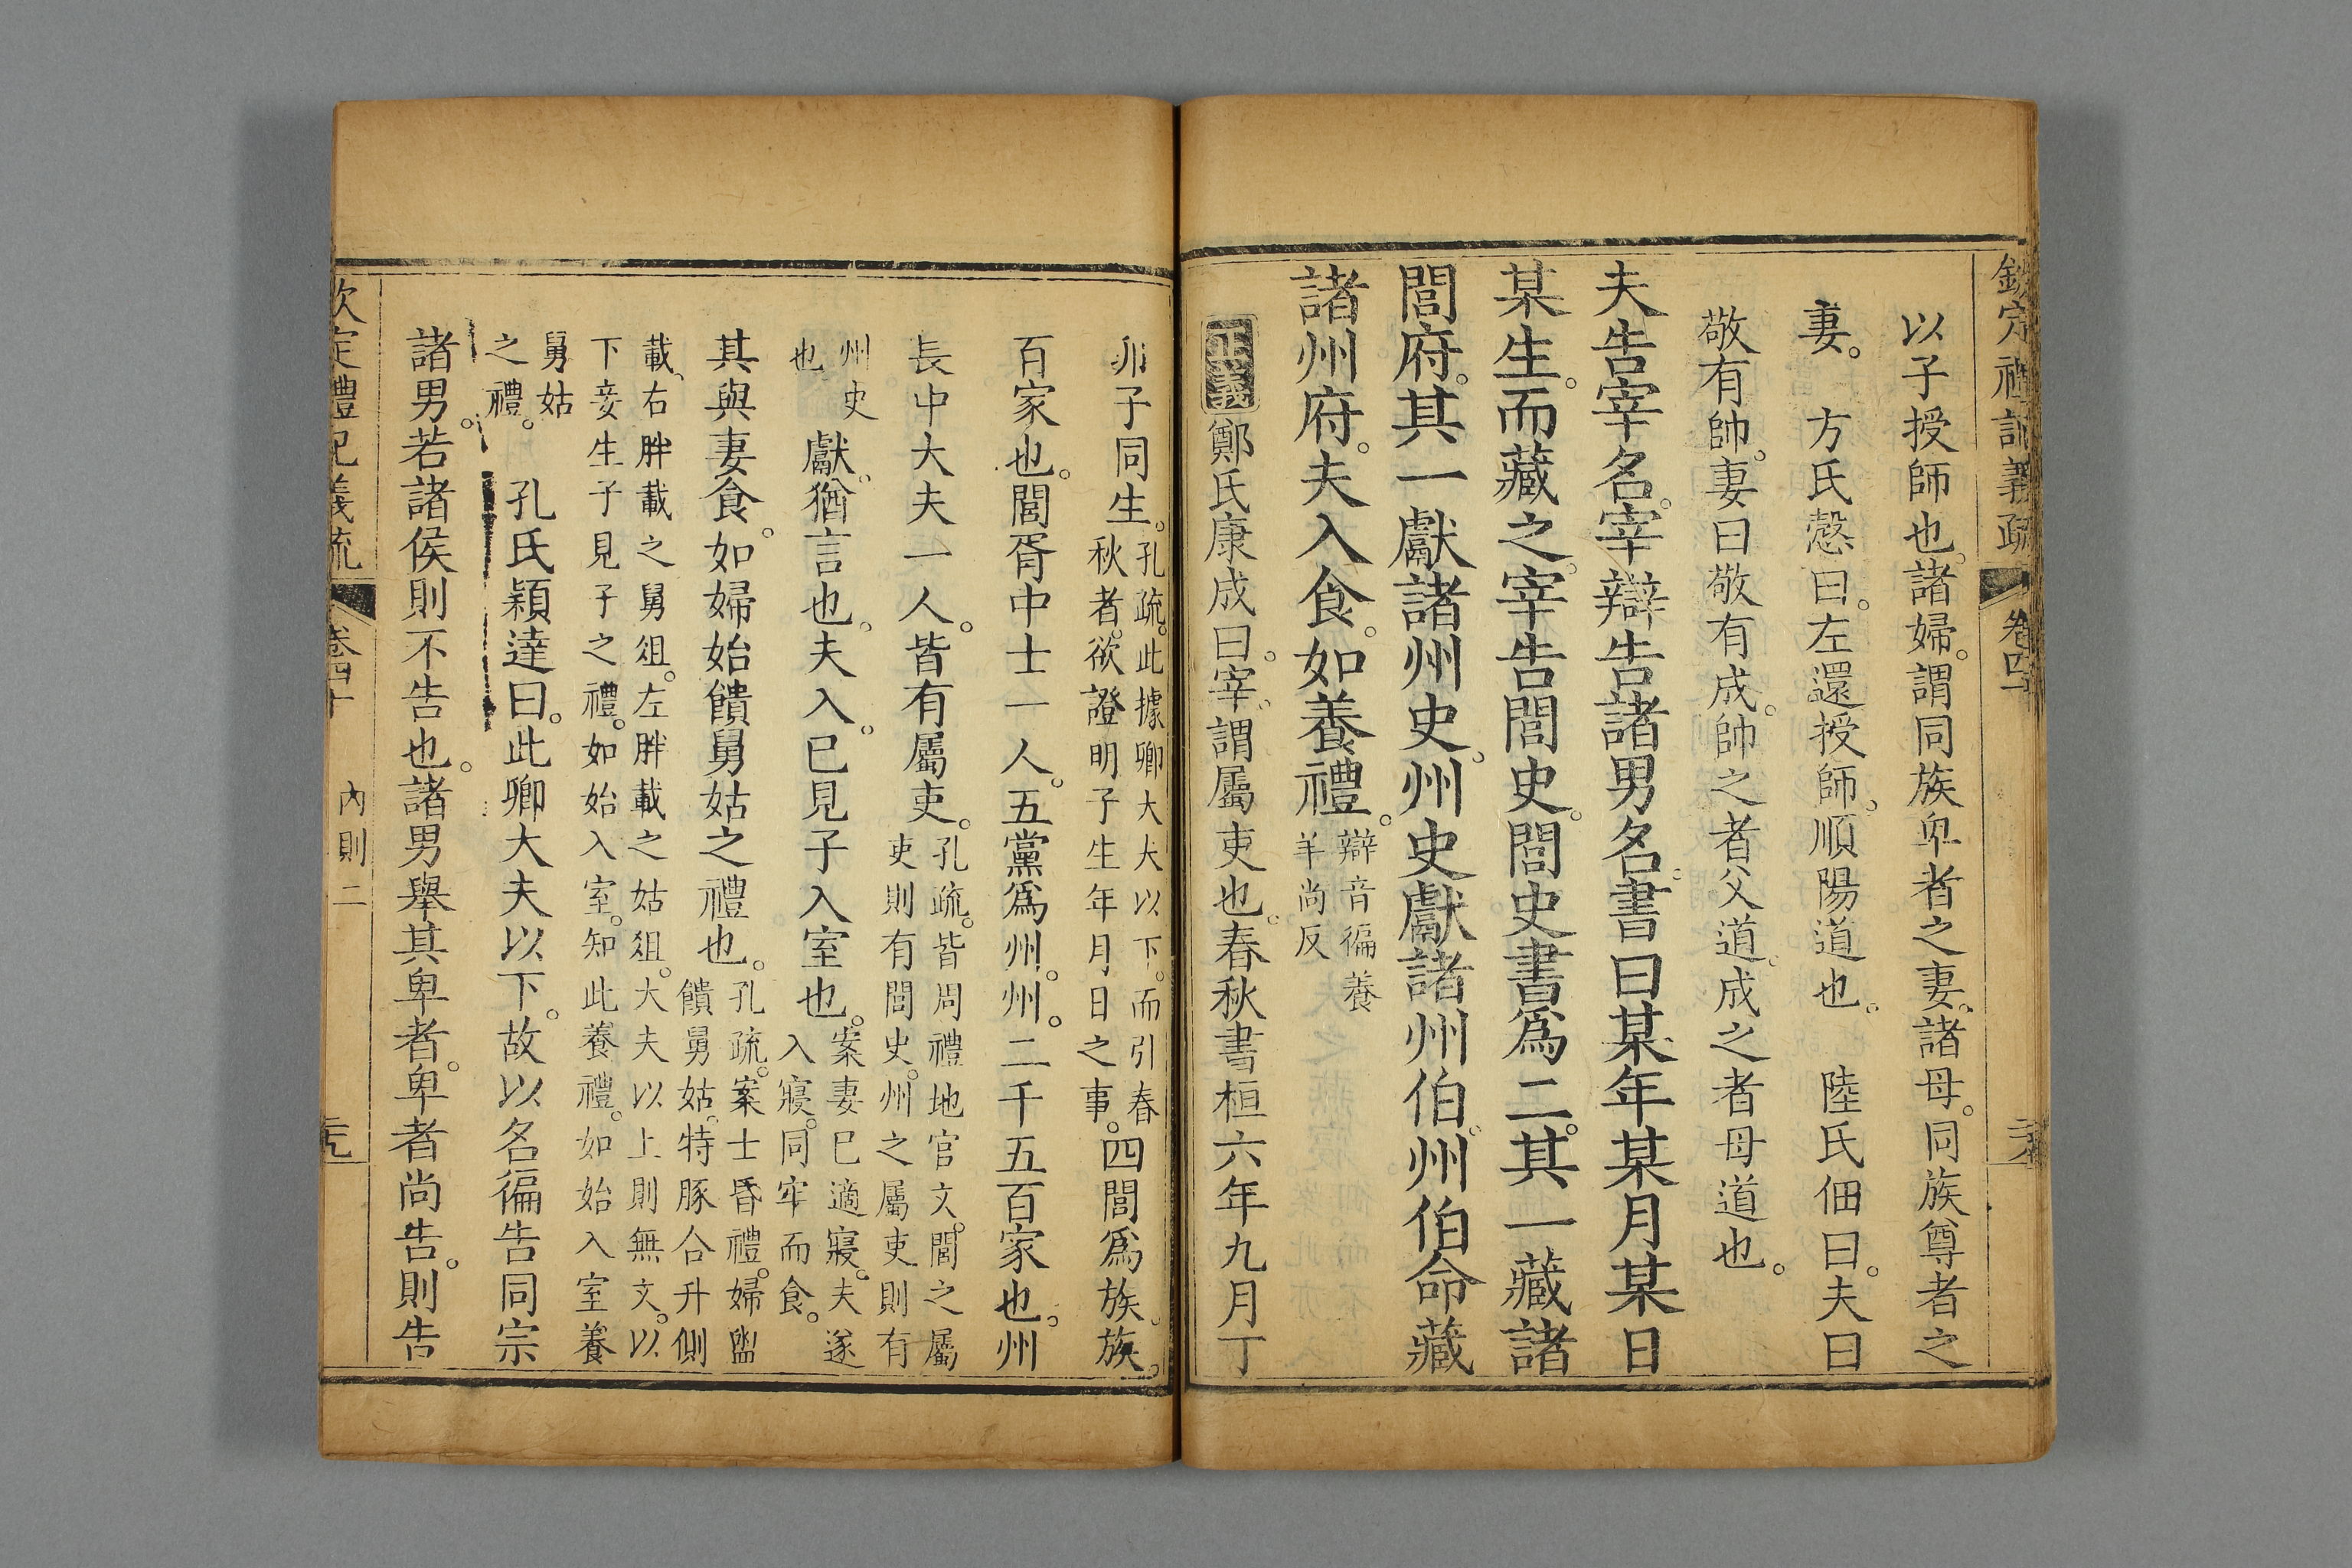 欽定禮記義疏 卷四十
以子授師也。諸婦。謂同族卑者之妻。諸母。同族尊者之
妻。 方氏慤曰。左還授師。順陽道也。 陸氏佃曰。夫曰
敬有帥。妻曰敬有成。帥之者父道。成之者母道也。
夫告宰名。宰辯告諸男名。書曰某年某月某日
某生。而藏之。宰告閭史。閭史書爲二。其一藏諸
閭府。其一獻諸州史。州史獻諸州伯。州伯命藏
諸州府。夫入食。如養禮。辯音徧養
羊尚反
正義 鄭氏康成曰。宰。謂屬吏也。春秋書桓六年九月丁
卯子同生。孔疏。此據卿大夫以下。而引春
秋者。欲證明子生年月日之事。四閭爲族。族。
百家也。閭胥中士一人。五黨爲州。州。二千五百家也。州
長中大夫一人。皆有屬吏。孔疏。皆周禮地官文。閭之屬
吏則有閭史。州之屬吏則有
州史
也 獻。猶言也。夫入。已見子入室也。案妻已適寢。夫遂
入寢。同牢而食。
其與妻食。如婦始饋舅姑之禮也。孔疏。案士昏禮。婦盥
饋舅姑。特豚合升側
載、右胖載之舅俎。左胖載之姑俎。大夫以上則無文。以
下妾生子見子之禮。如始入室。知此養禮。如始入室養
舅姑
之禮。 孔氏穎達曰。此卿大夫以下。故以名徧告同宗
諸男。若諸侯則不告也。諸男舉其卑者。卑者尚告。則告
欽定禮記義疏 卷四十 內則二 元